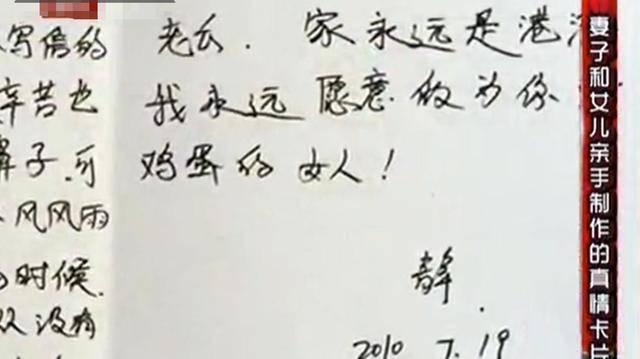 写信的
辛苦也
鼻子.可
风风雨
时候.
没有
老公. 家永远是港湾
我永远愿意做为你
鸡蛋的女人!
静.
2010 7.19
妻子和女儿亲手制作的真情卡片